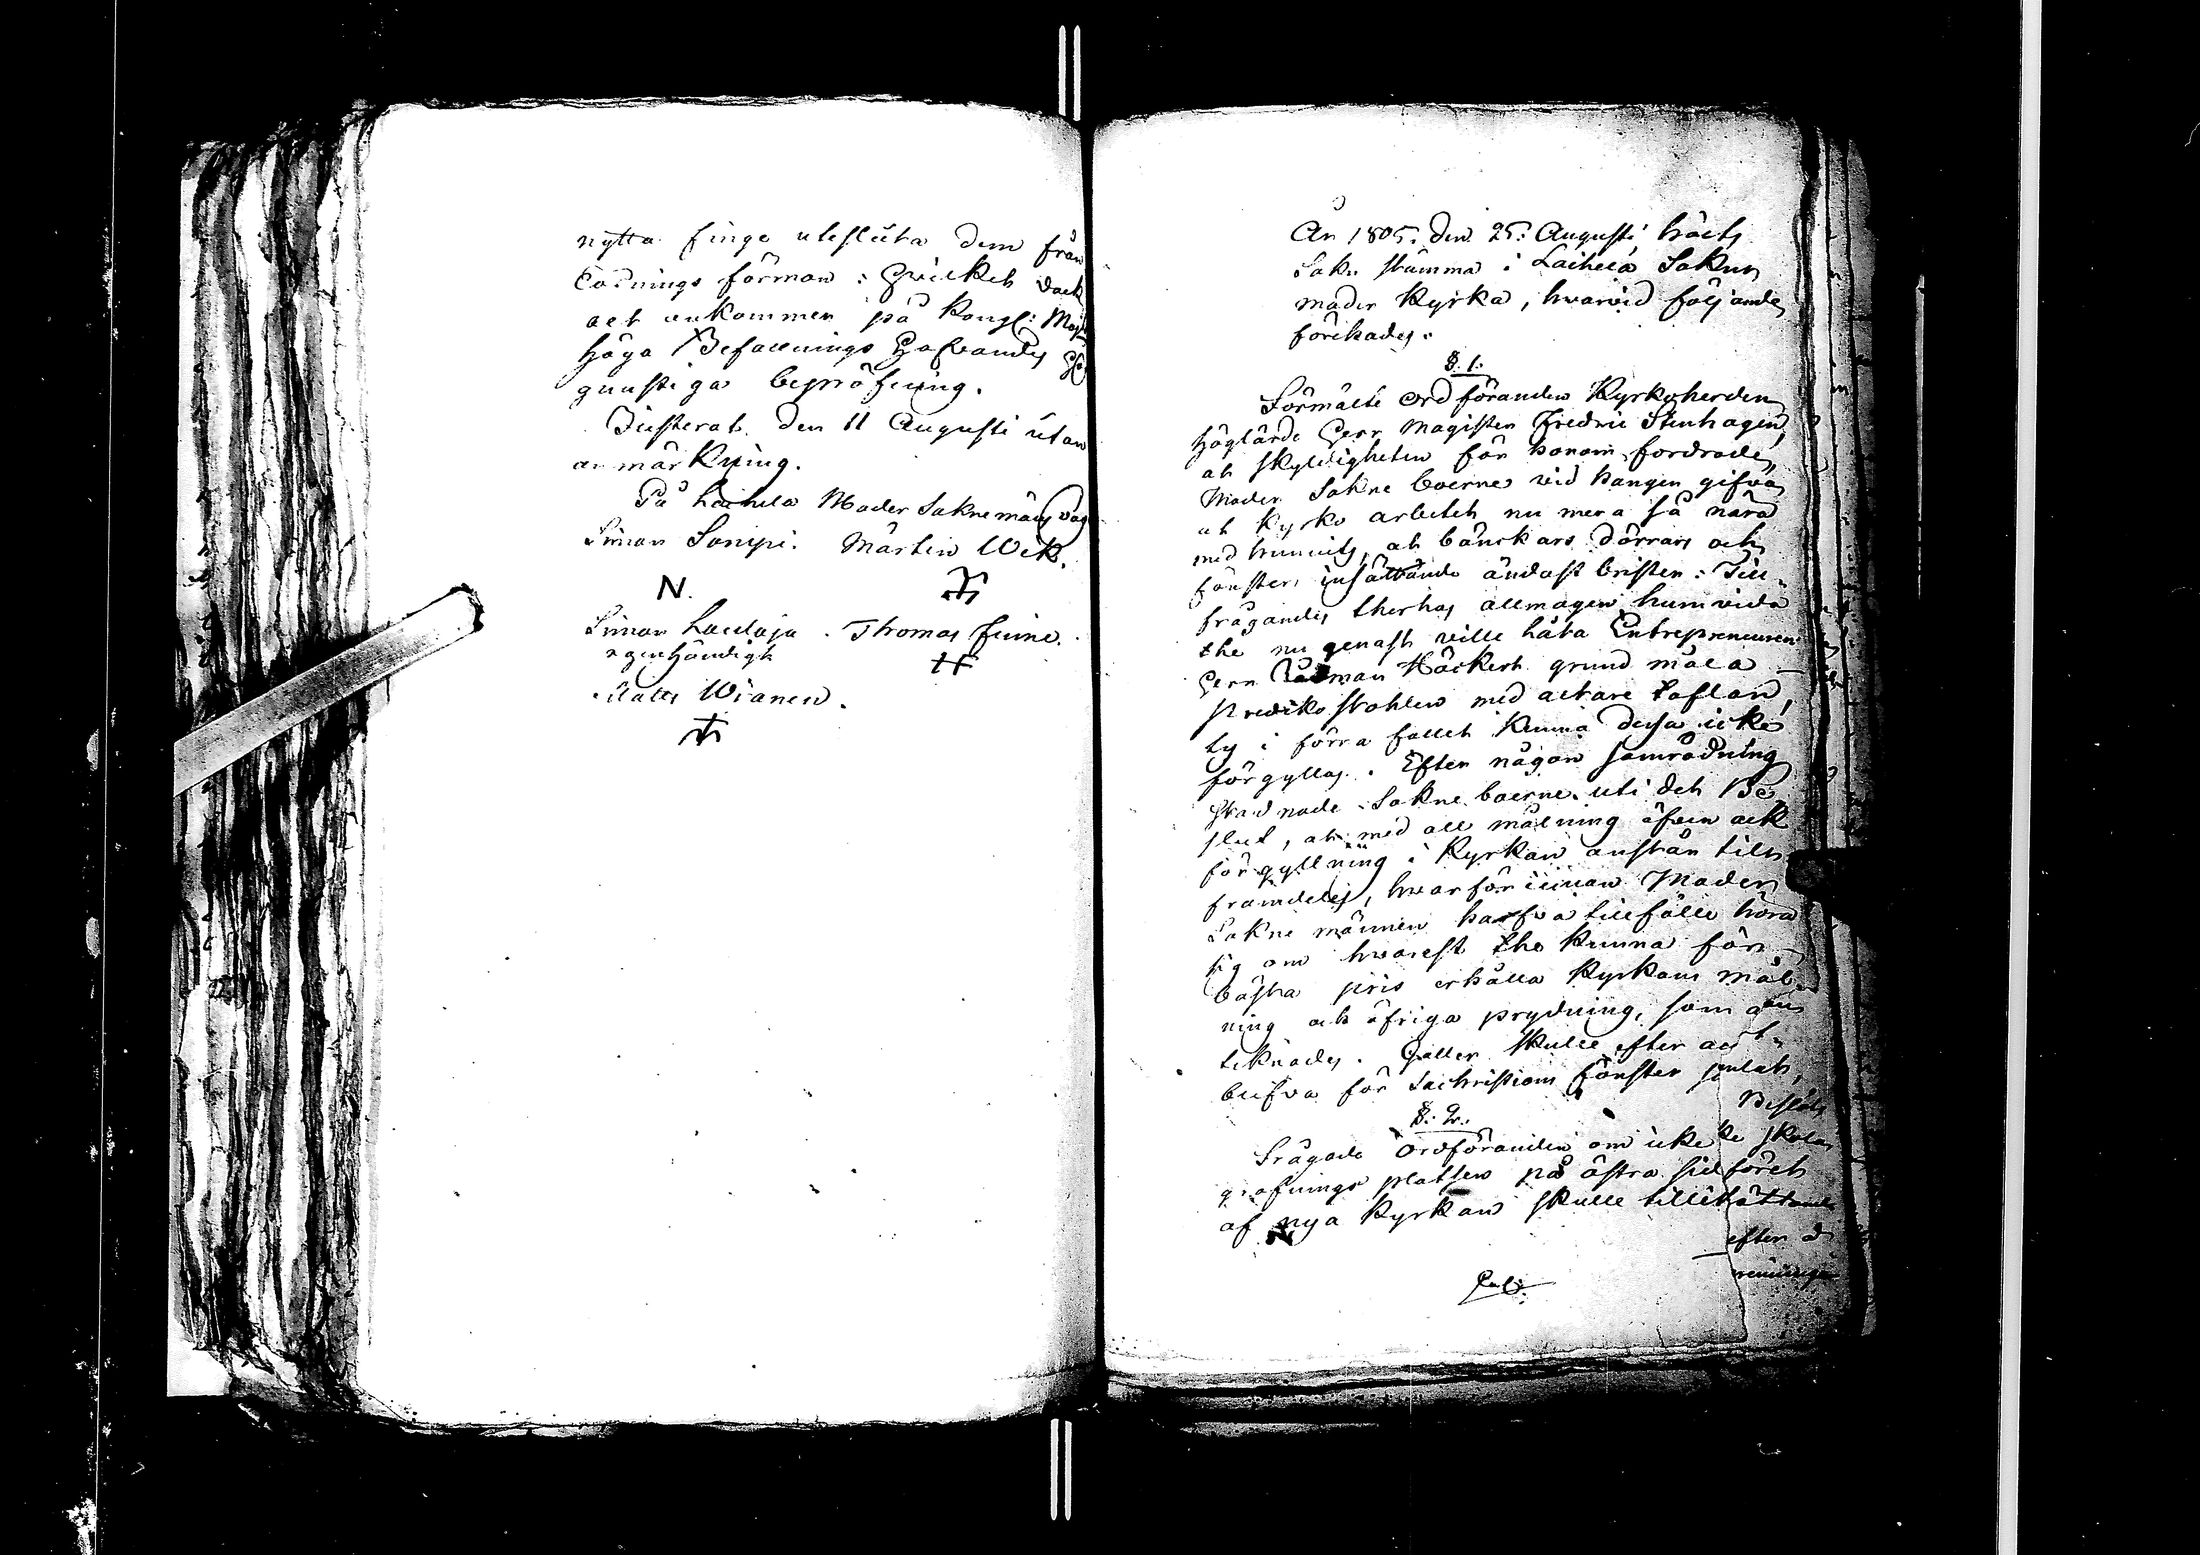 nytta finge utesluta dem från
lednings förmon: Hvilket dock
alt ankommer på Kongl: Maj:ts
höga Befallnings Hafvandes
gunstiga bepröfning.
Justerat den 11 Augusti utan
anmärkning.
På Laihela Moder Sokne mäns väg
Simon Sompi. Mårten Wek.
N.
Simon Laulaja. Thomas Fuino.
egenhändigt
Matts Wianen.
År 1805. den 25. Augusti hölts
Sokn stämma i Laihela Sokns
moder Kyrka, hvarvid följande
förehades:
§. 1.
Förmälte Ordföranden Kyrkoherden
höglärde Herr Magister Fredric Stenhagen,
at skyldigheten för honom fordrade,
Moder Sokne boerne vid handen gifva
at Kyrko arbetet nu mera så nära
med hunnits, at bänckars dörrars och
fönsters insättande ändast brister: Till-
frågandes therhos allmogen huruvida
the nu genast ville låta Entrepreneuren
Herr Rådman Häckert grund måla
predikostohlen med altare taflan,
ty i förra fallet kunna dessa icke
förgyllas. Efter någon samrådning
stadnade Sokne boerne uti det Be-
slut, at med all målning äfven ock
förgyllning i Kyrkan anstår tills
framdeles, hvarför innan Moder
Sokne männen hafva tillfälle höra
sig om hvarest the kunna för
bästa pris erhålla Kyrkans mål-
ning och öfriga prydning, som an-
teknades. Galler skulle efter
blifva för Sachristians fönster
§. 2.
Frågade Ordföranden om icke
grafnings platsen på östra sid
af nya Kyrkan skulle
Beslöts
skola
efter